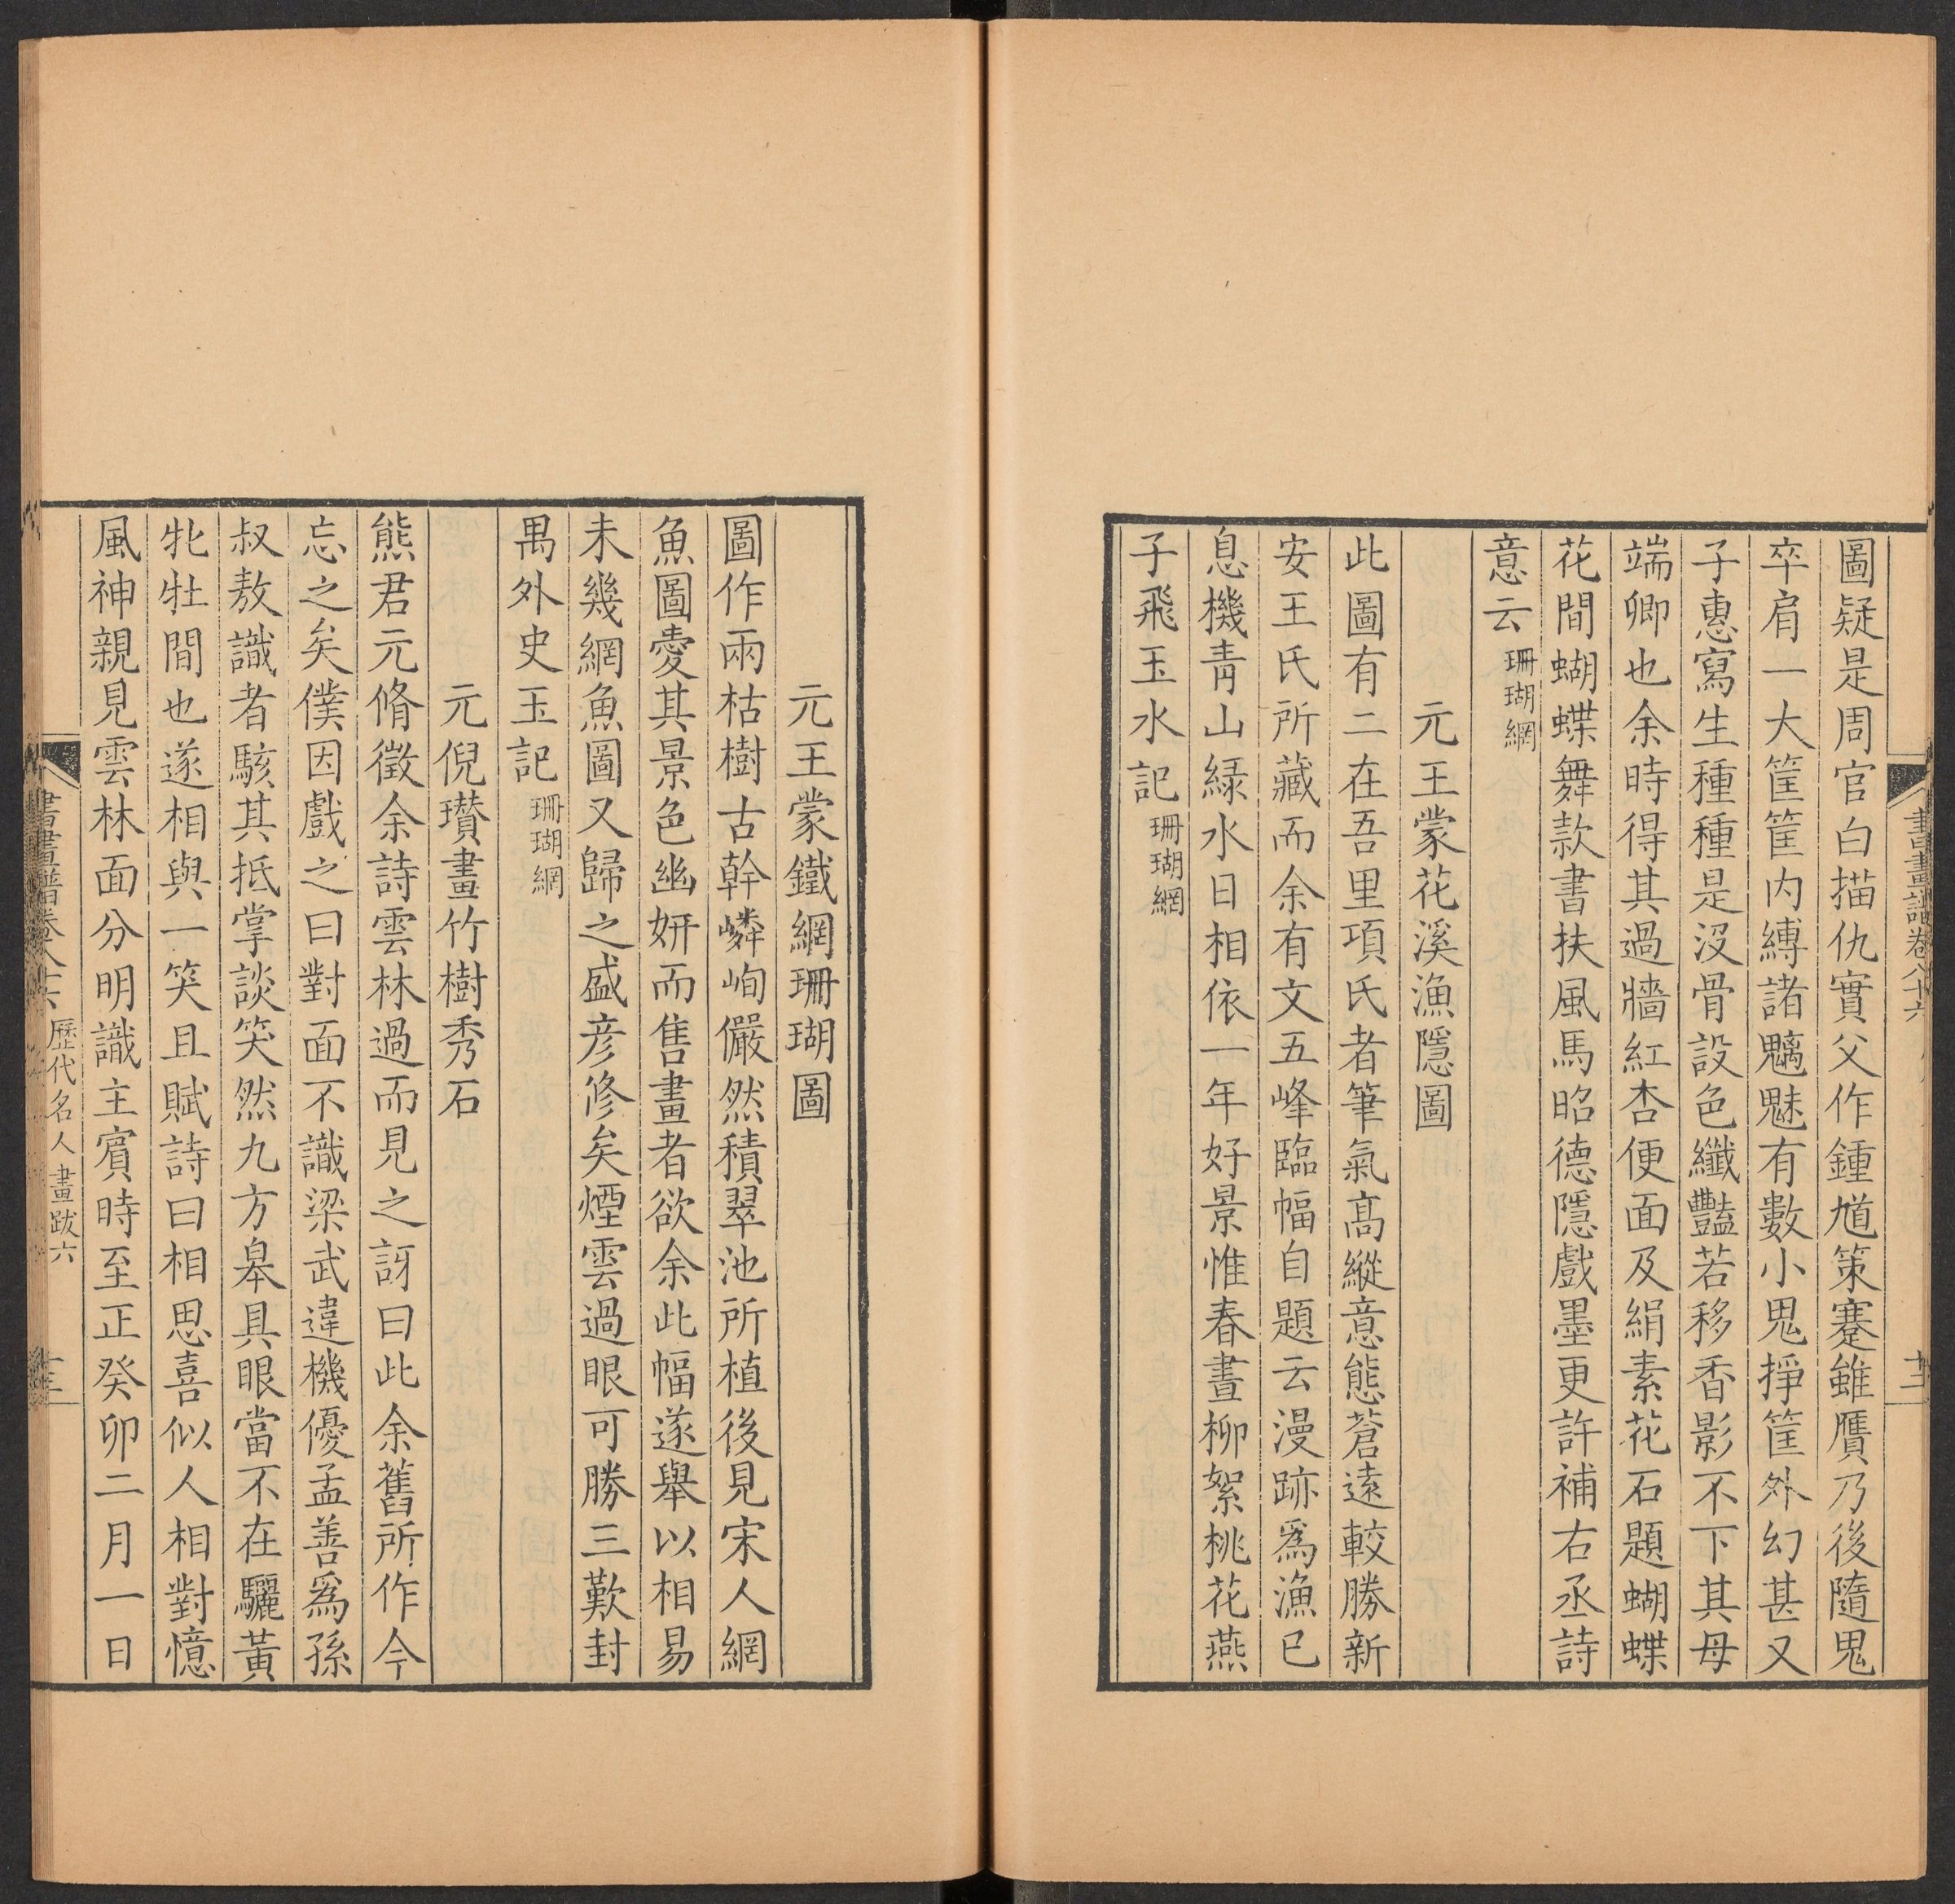 書畫譜卷八十六
十二
圖疑是周官白描仇實父作鍾馗策蹇雖贗乃後隨鬼
卒肩一大筐筐内縛諸魑魅有數小鬼掙筐外幻甚又
子惠寫生種種是沒骨設色纖豔若移香影不下其母
端卿也余時得其過牆紅杏便面及絹素花石題蝴蝶
花間蝴蝶舞款書扶風馬昭德隱戲墨更許補右丞詩
意云珊瑚網
元王蒙花溪漁隱圖
此圖有二在吾里項氏者筆氣高縱意態蒼遠較勝新
安王氏所藏而余有文五峰臨幅自題云漫跡爲漁已
息機青山緑水日相依一年好景惟春晝柳絮桃花燕
子飛玉水記珊瑚網
元王蒙鐵網珊瑚圖
圖作兩枯樹古幹嶙峋儼然積翠池所植後見宋人網
魚圖愛其景色幽妍而售畫者欲余此幅遂舉以相易
未幾網魚圖又歸之盛彦修矣煙雲過眼可勝三歎封
禺外史玉記珊瑚網
元倪瓚畫竹樹秀石
熊君元脩徵余詩雲林過而見之訝曰此余舊所作今
忘之矣僕因戲之曰對面不識梁武違機優孟善爲孫
叔敖識者駭其抵掌談笑然九方皋具眼當不在驪黃
牝牡間也遂相與一笑且賦詩曰相思喜似人相對憶
風神親見雲林面分明識主賓時至正癸卯二月一日
書畫譜卷八十六 歷代名人畫跋六
十三